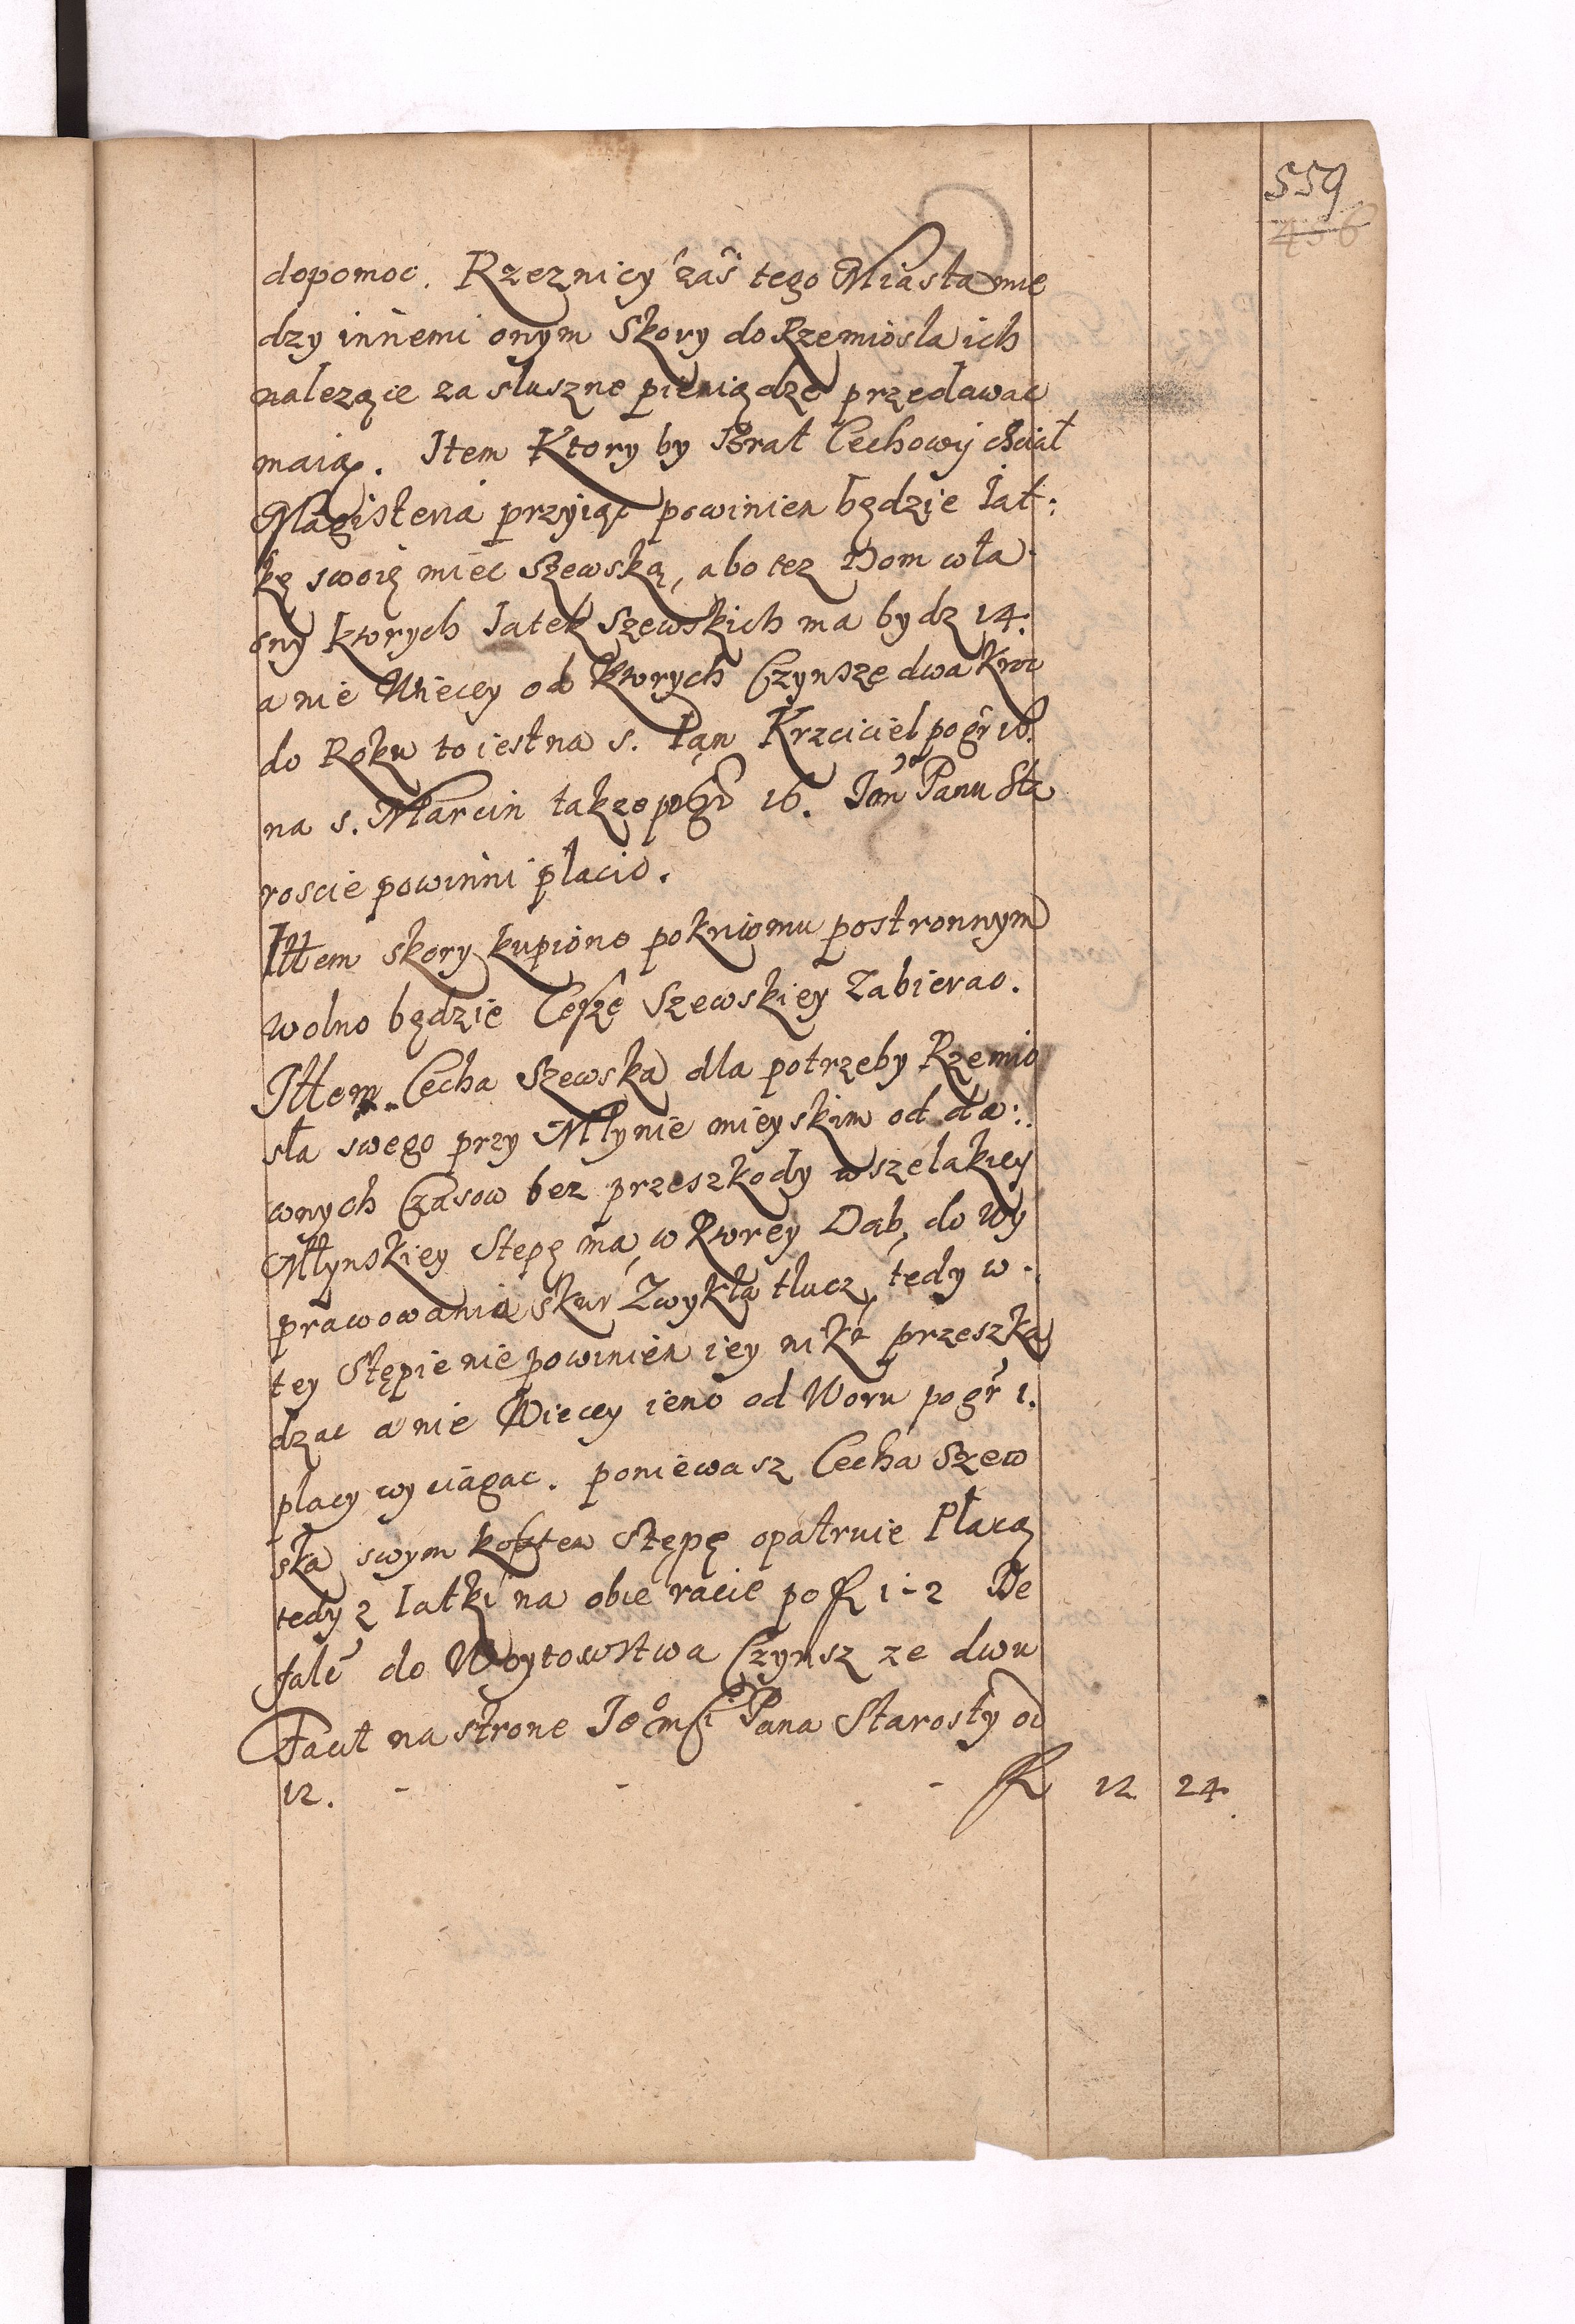 559
456
dopomoc. Rzeznicy zaś tego Miasta mie
dzy innemi onym Skory do Rzemiosla ich
nalezące za sluszne pieniądze przedawac
maią. Item Ktory by Brat Cechowy chciał
Magisteria przyiąc powinien będzie Iat:
kę swoię miec Szewską, abo tez Dom wła
sny ktorych Iatek Szewskich ma bydz 14.
a nie Wiecey od ktorych Czynsze dwa kroc
do Roku to iest na s. Ian Krzciciel po gr 16.
na s. Marcin takze po gr 16. Jem Panu Sta
roscie powinni placic.
Ittem skory kupione pokriomu postronnym
wolno będzie Cesze Szewskiey Zabierac.
Ittem Cecha Szewska dla potrzeby Rzemio
sła swego przy Młynie mieyskim od da:
wnych Czasow bez przeszkody wszelakiey
Młynskiey Stepę ma, w ktorey Dab, do wy
prawowania skur Zwykła tlucz, tedy w
tey Stępie nie powinien iey nikt przeszka
dzac a nie Wiecey ieno od Woru po gr 1.
placy wyciagac. poniewasz Cecha Szew
ska swym kosztem Stępę opatruie Płacą
tedy z Iatki na obie racie po fl 1-2 De
fale do Woytowstwa Czynsz ze dwu
Facit na strone Jeomsci Pana Starosty od
12. - - - fl 12 24.